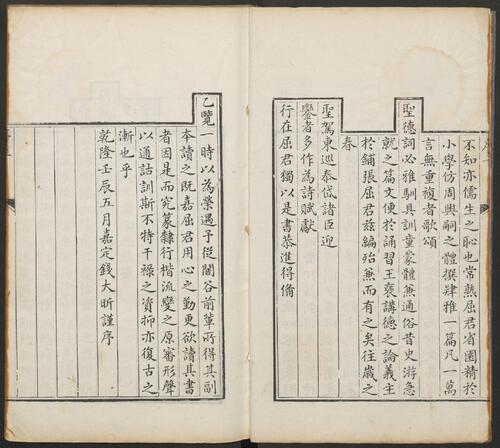 不知亦儒生之恥也常熟屈君省園精於
小學仿周興嗣之體撰肆雅一篇凡一萬
言無重複者歌頌
聖德詞必雅馴具訓童蒙體無通俗昔史游急
就之篇文便於誦習王褒講德之論義主
於鋪張屈君茲編殆兼而有之矣往歲之
春
聖駕東巡泰岱諸臣迎
鑾者多作為詩賦獻
行在屈君獨以是書恭進得備
乙覽一時以為榮遇予從閬谷前輩所得其副
本讀之既嘉屈君用心之勤更欲讀其書
者因是而究篆隸行楷流變之原審形聲
以通詁訓斯不特干祿之資抑亦復古之
漸也乎
乾隆壬辰五月嘉定錢大昕謹序